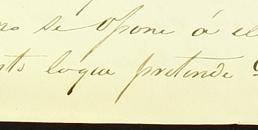 se opone á el
lo que pretende